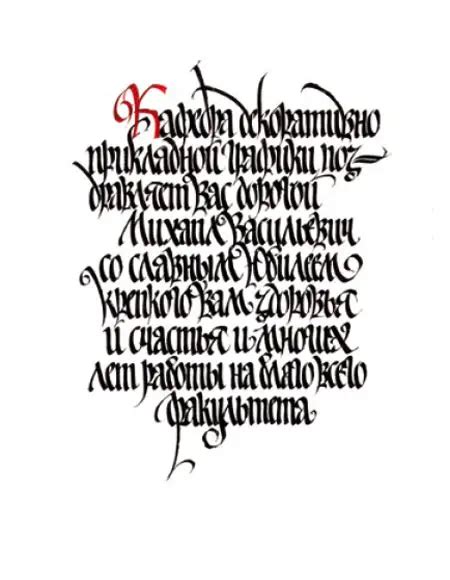 Кафедра декоративно
прикладной графики поз-
дравляет Вас дорогой
Михаил Васильевич
со славным Юбилеем
Крепкого Вам здоровья
и счастья и многих
лет работы на благо всего
факультета